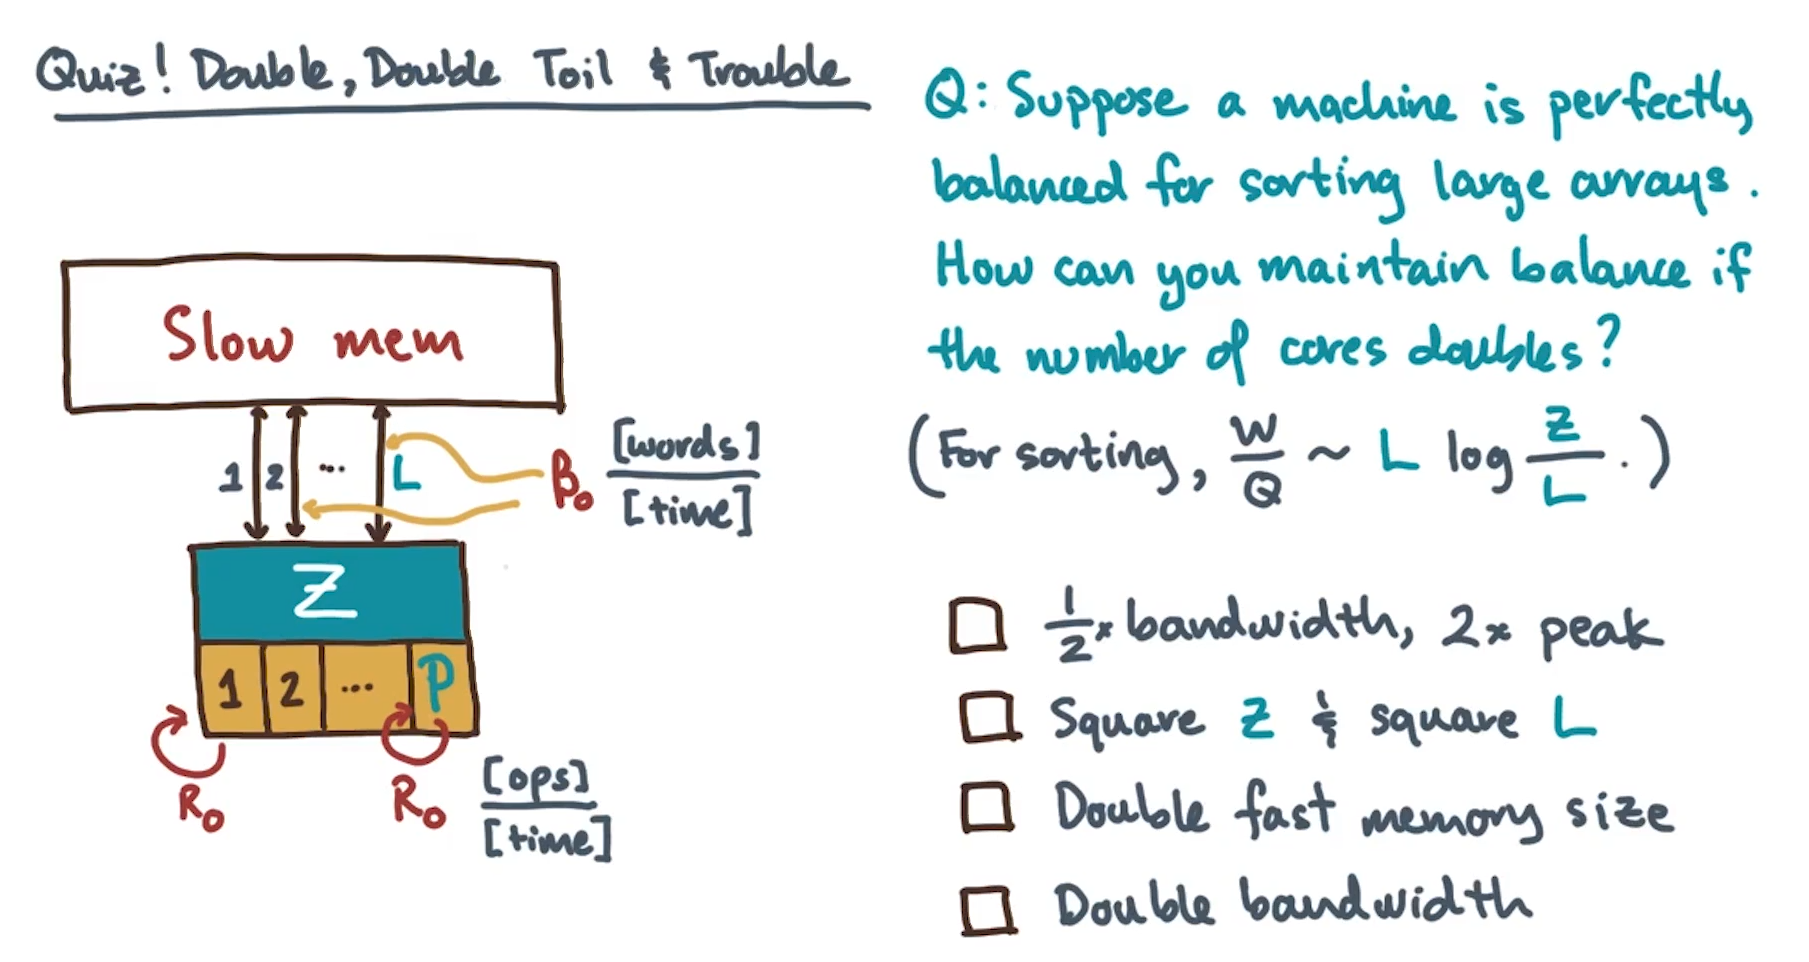 Quiz! Double, Double Toil & Trouble
Slow mem
1 2 ... L
β₀ [words]
[time]
Z
1 2 ... P
R₀ R₀ [ops]
[time]
Q: Suppose a machine is perfectly
balanced for sorting large arrays.
How can you maintain balance if
the number of cores doubles?
(For sorting, W/Q ~ L log Z/L.)
1/2x bandwidth, 2x peak
Square Z & square L
Double fast memory size
Double bandwidth